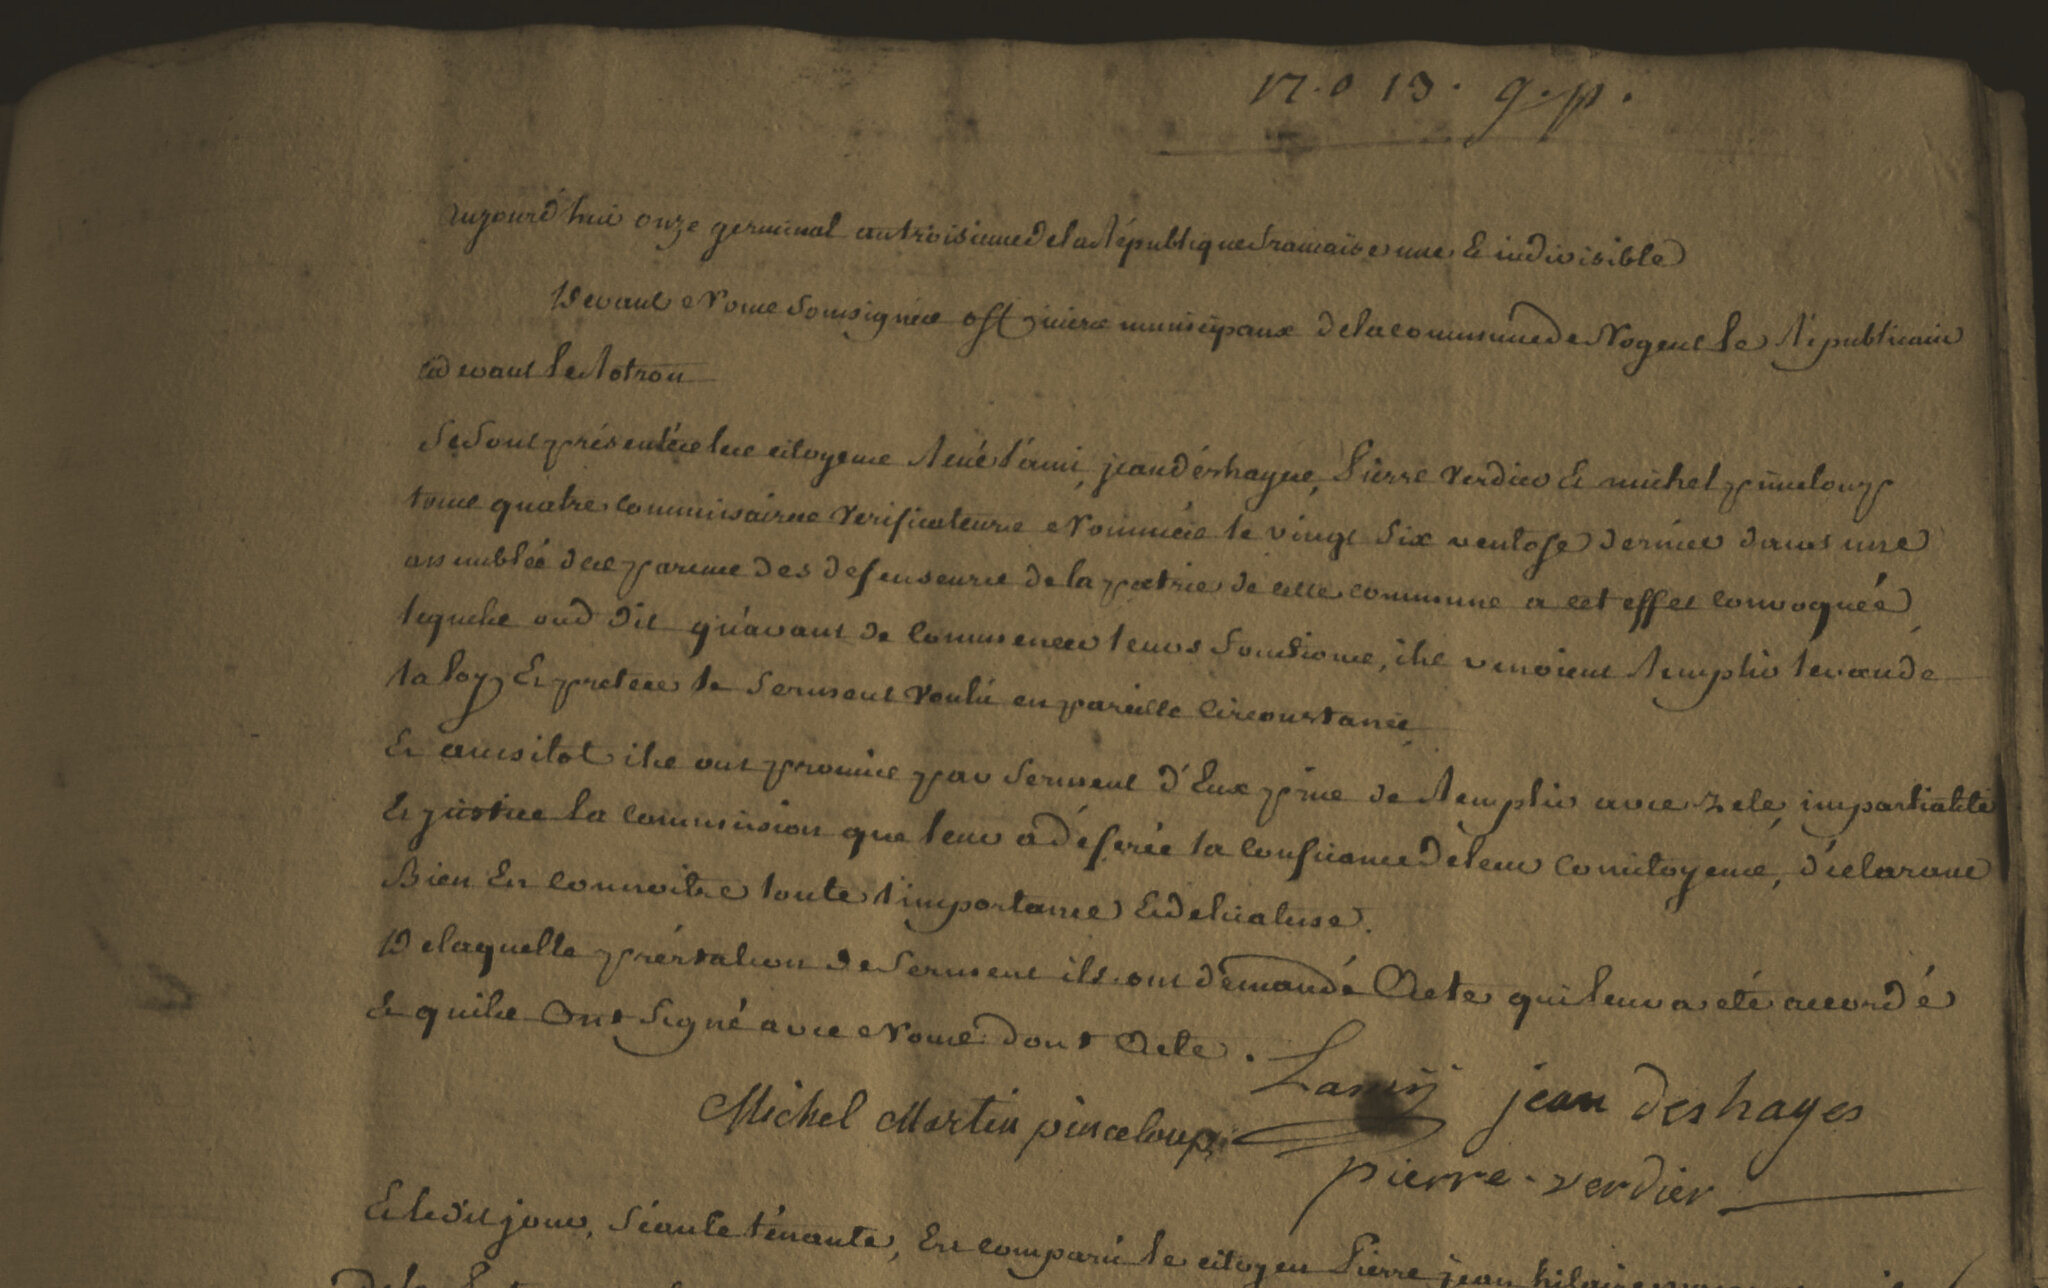 17.e 13. g.p.
aujourd'hui onze germinal an troisieme de la République francaise une & indivisible
Devant Nous soussignés officiers municipaux de la commune de Nogent le Républicain
cidevant le Rotrou
Se sont présentés les citoyens René Lami, jean déshayes, Pierre Verdier & michel pinceloup
tous quatre commissaires Verificateurs Nommés le vingt six ventose dernier dans une
assemblée des parens des defenseurs de la patrie de cette commune a cet effet convoquée
lesquels ond dit qu'avant de commencer leurs fonctions, ils venoient Remplir le vœu de
la loy & preter le serment voulu en pareille circonstance
Et aussitot ils ont promis par serment d'Eux pris de Remplir avec zele, impartialité
& justice la commission que leur a déférée la confiance de leurs concitoyens, déclarans
Bien En connoitre toute l'importance & delicatesse.
De laquelle préstation de serment ils ont demandé Acte qui leur a été accordé
& qu'ils Ont signé avec Nous dont Acte.
Lamy jean deshayes
Michel Martin pinceloup
pierre-verdier
Et ledit jour, séante ténante, Est comparu le citoyen Pierre jean hilaire